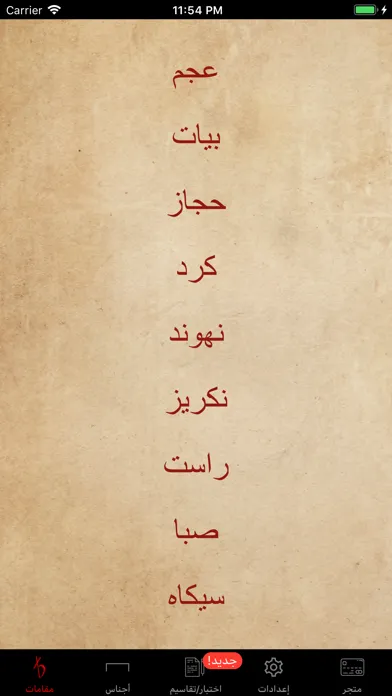 Carrier 11:54 PM
عجم
بيات
حجاز
كرد
نهوند
نكريز
راست
صبا
سيكاه
جديد!
متجر إعدادات اختبار/تقاسيم أجناس مقامات